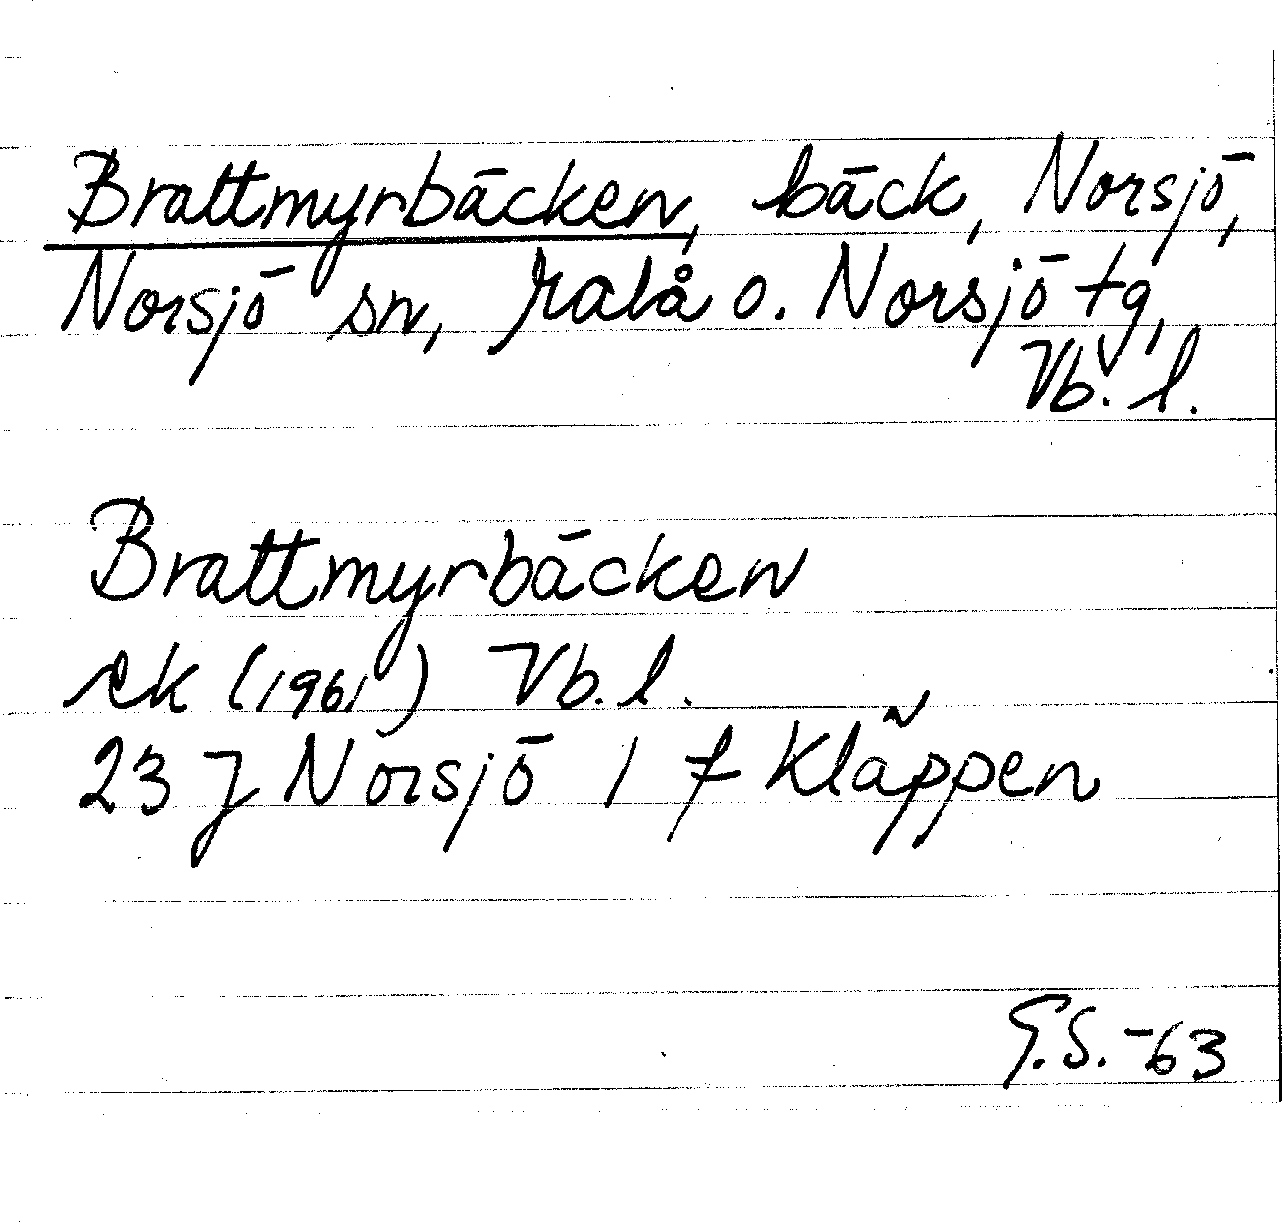 Brattmyrbäcken, bäck, Norsjö,
Norsjö sn, Malå o. Norsjö tg,
Vb. l.
Brattmyrbäcken
ek (1961) Vb. l.
23 J Norsjö 1 f Kläppen
G.S. -63